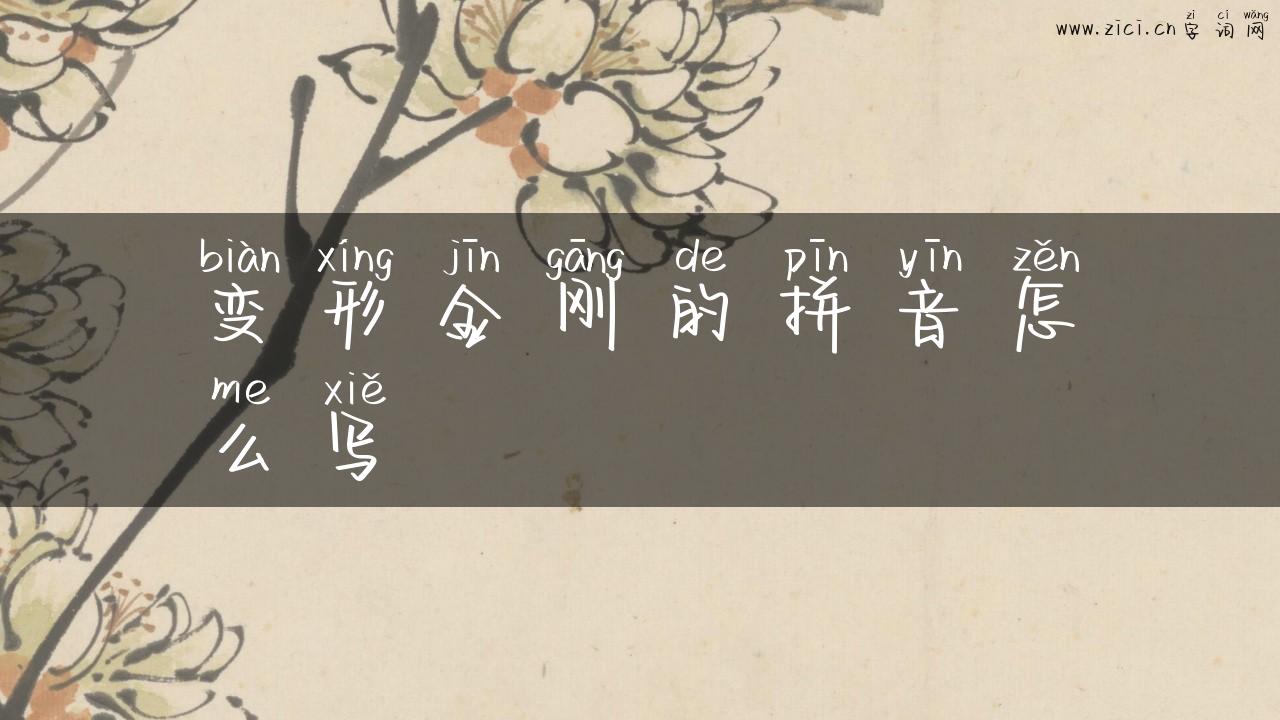 zì cí wǎng
www.zici.cn 字 词 网
biàn xíng jīn gāng de pīn yīn zěn
变 形 金 刚 的 拼 音 怎
me xiě
么 写